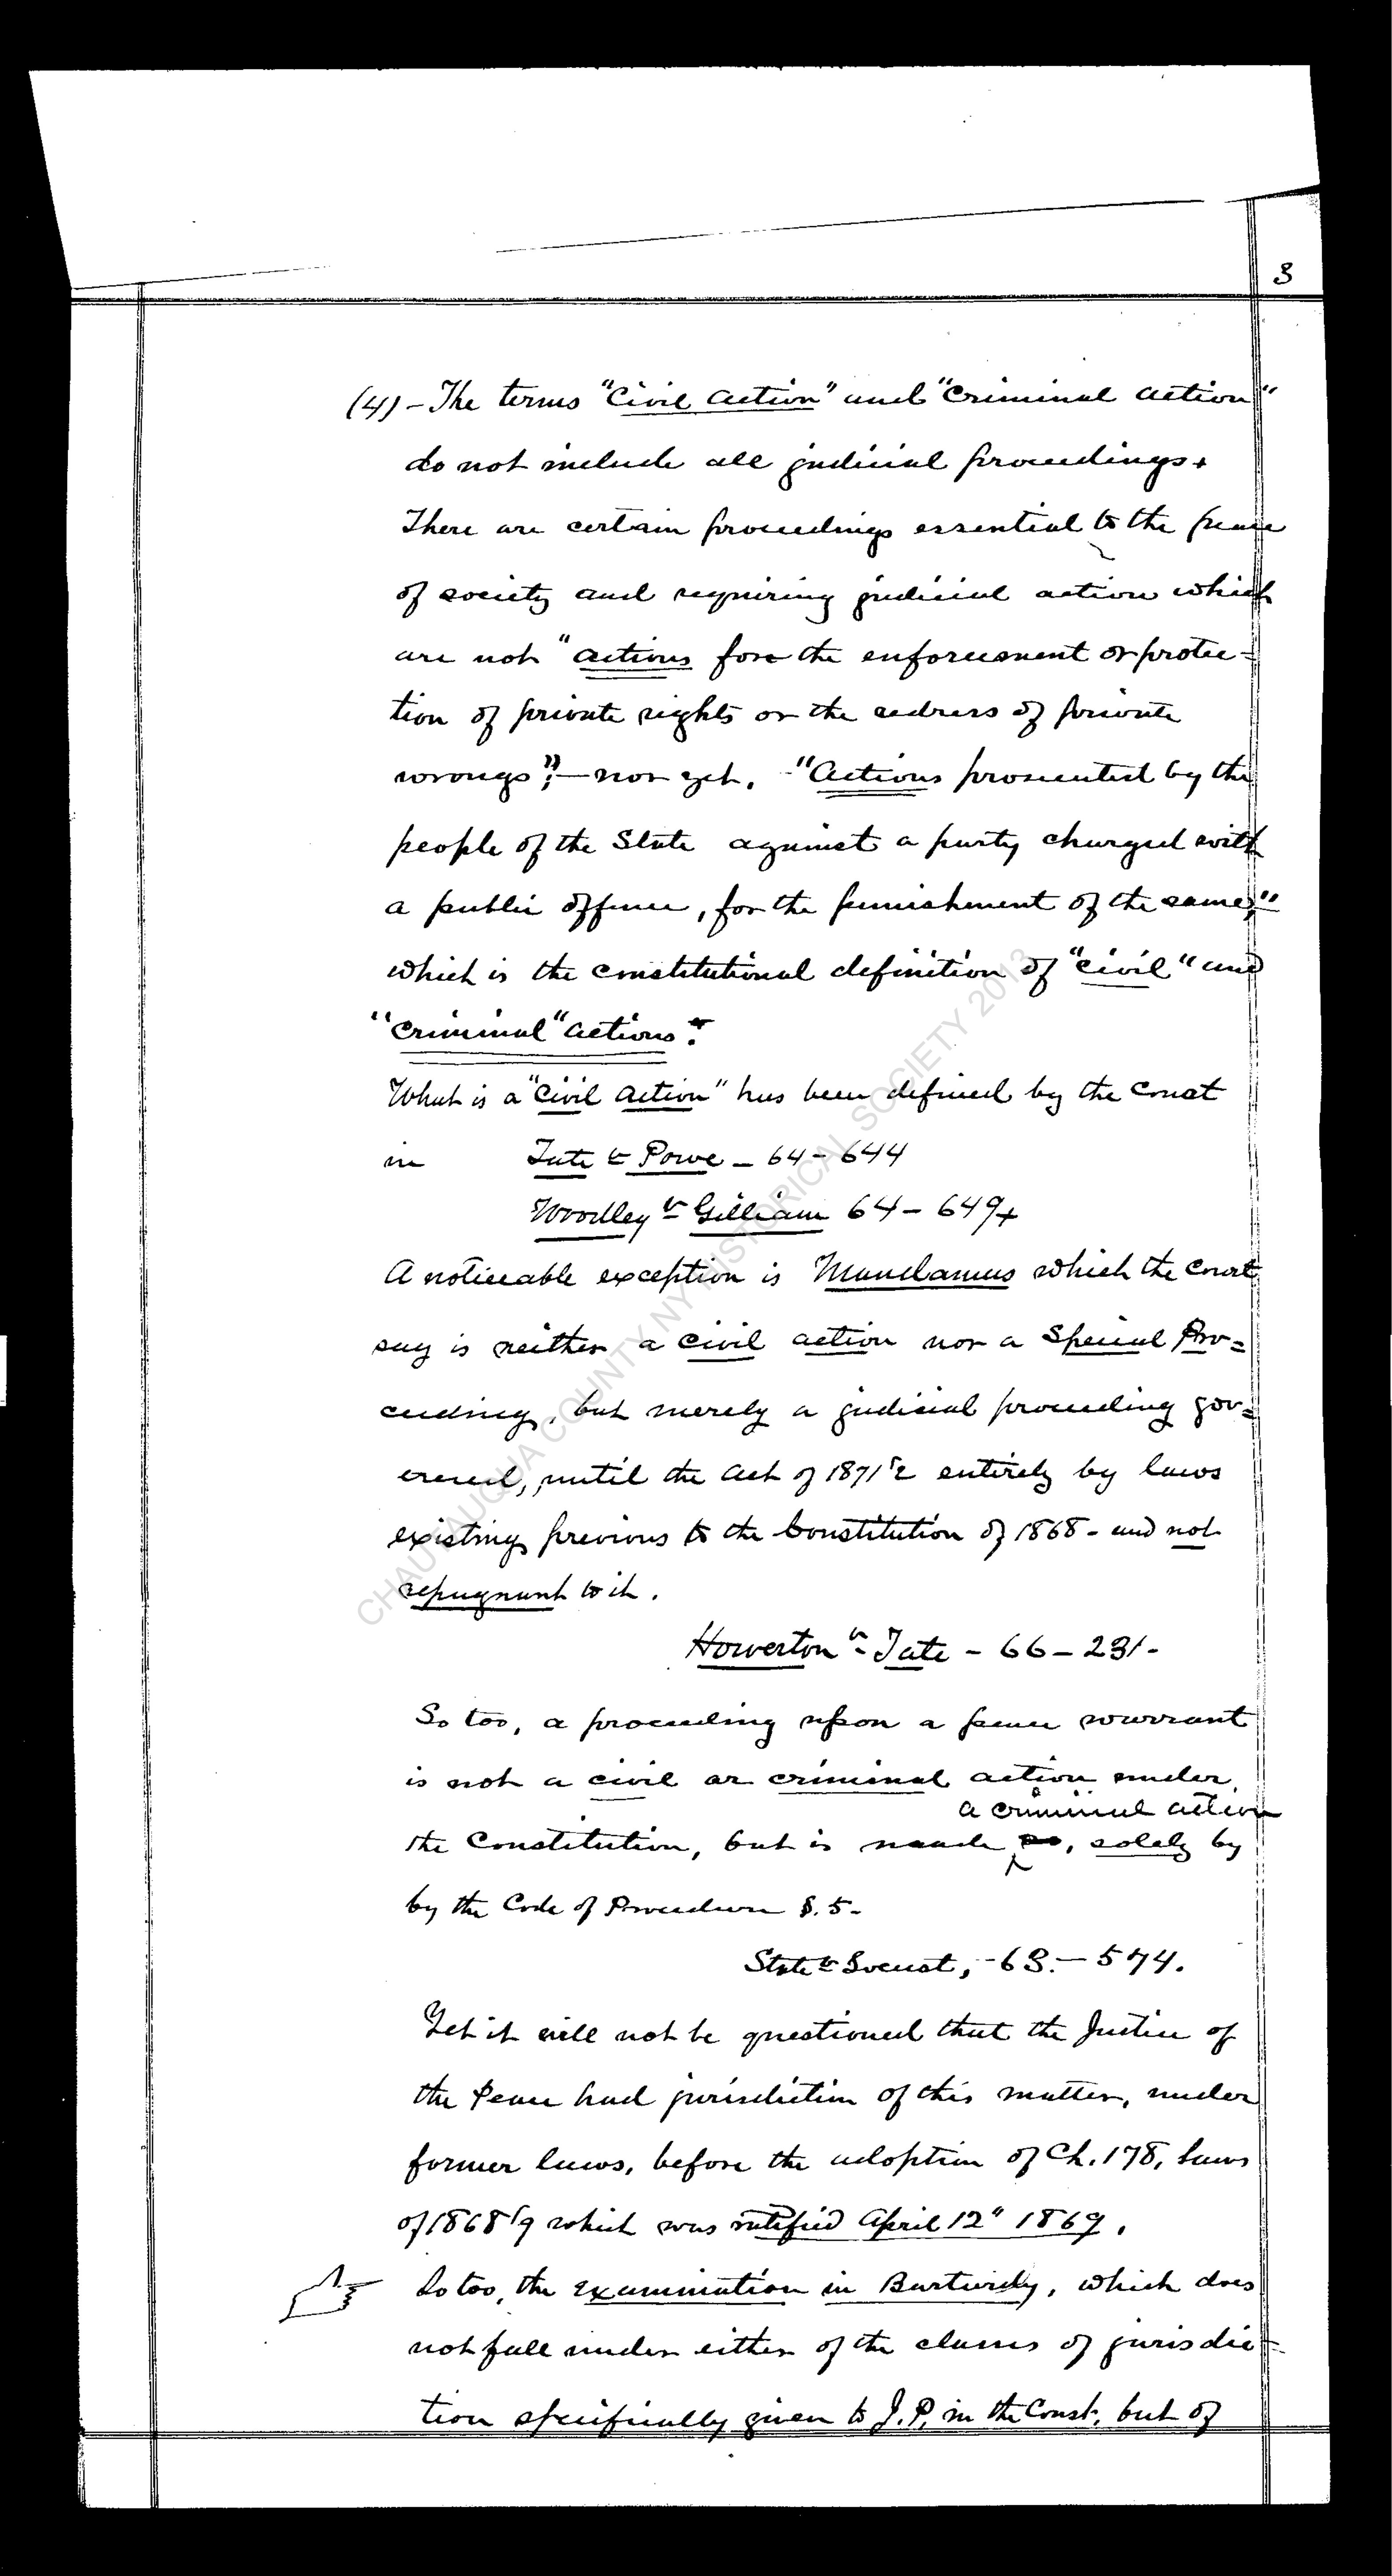 3
(4) - The terms "Civil action" and "Criminal action"
do not include all judicial proceedings.
There are certain proceedings essential to the peace
of society and requiring judicial action which
are not "actions for the enforcement or protec-
tion of private rights or the redress of private
wrongs"; - nor yet, - "Actions prosecuted by the
people of the State against a party charged with
a public offence, for the punishment of the same,"
which is the constitutional definition of "civil" and
"Criminal" actions.
What is a "Civil action" has been defined by the Court
in Tate v Powe - 64 - 644
Woodley v Gilliam 64 - 649
A noticeable exception is Mandamus which the Court
say is neither a civil action nor a Special Pro-
ceeding, but merely a judicial proceeding gov-
erened, until the act of 1871'2 entirely by laws
existing previous to the Constitution of 1868 - and not
repugnant to it.
Howerton v Tate - 66 - 231 -
So too, a proceeding upon a peace warrant
is not a civil or criminal action under
a criminal action
the Constitution, but is made so, solely by
by the Code of Procedure §. 5 -
State v Locust, - 63. - 574.
Yet it will not be questioned that the Justice of
the Peace had jurisdiction of this matter, under
former laws, before the adoption of Ch. 178, Laws
of 1868'9 which was ratified April 12" 1869.
So too, the examination in Bastardy, which does
not fall under either of the classes of jurisdic-
tion specifically given to J.P. in the Const, but of
CHAUTAUQUA COUNTY NY HISTORICAL SOCIETY 2013